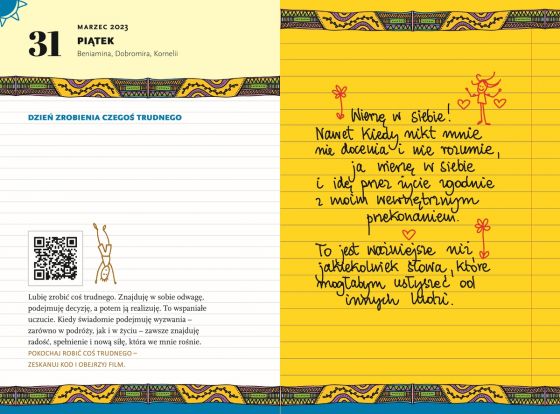 31
MARZEC 2023
PIĄTEK
Beniamina, Dobromira, Kornelii
DZIEŃ ZROBIENIA CZEGOŚ TRUDNEGO
Lubię zrobić coś trudnego. Znajduję w sobie odwagę,
podejmuję decyzję, a potem ją realizuję. To wspaniałe
uczucie. Kiedy świadomie podejmuję wyzwania –
zarówno w podróży, jak i w życiu – zawsze znajduję
radość, spełnienie i nową siłę, która we mnie rośnie.
POKOCHAJ ROBIĆ COŚ TRUDNEGO –
ZESKANUJ KOD I OBEJRZYJ FILM.
Wierzę w siebie!
Nawet kiedy nikt mnie
nie docenia i nie rozumie,
ja wierzę w siebie
i idę przez życie zgodnie
z moim wewnętrznym
przekonaniem.
To jest ważniejsze niż
jakiekolwiek słowa, które
mogłabym usłyszeć od
innych ludzi.